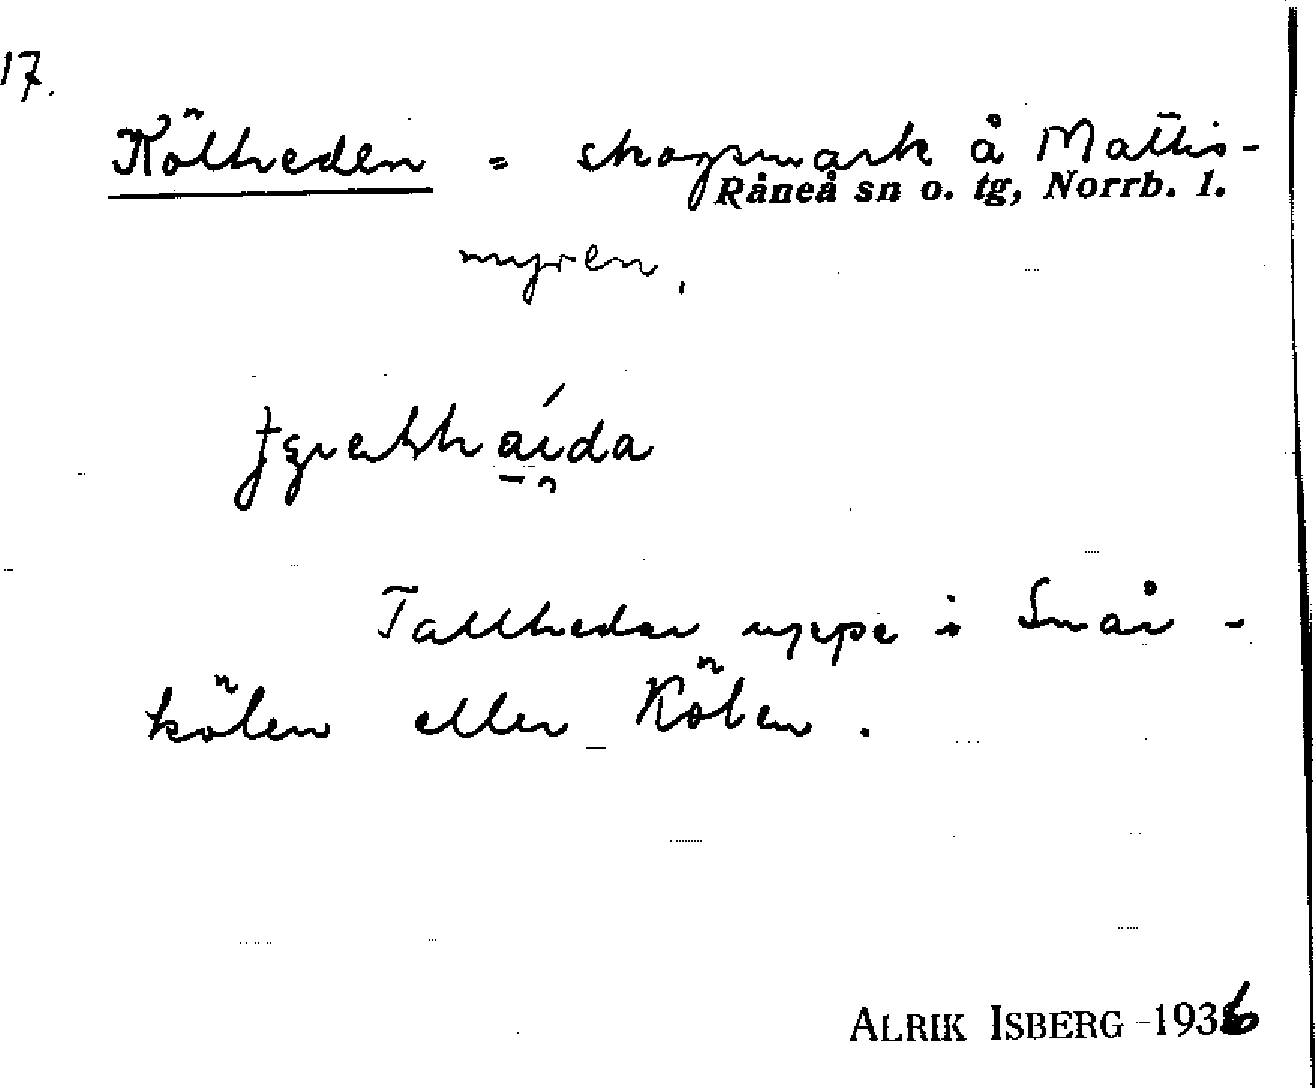 17.
Kölheden = skogsmark å Mattis-
Råneå sn o. tg, Norrb. l.
myren.
Tallhedar uppe i Småi-
kölen eller Kölen.
ALRIK ISBERG -1936